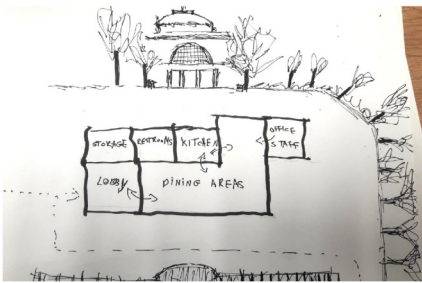 STORAGE
RESTROOMS
KITCHEN
OFFICE
STAFF
LOBBY
DINING AREAS